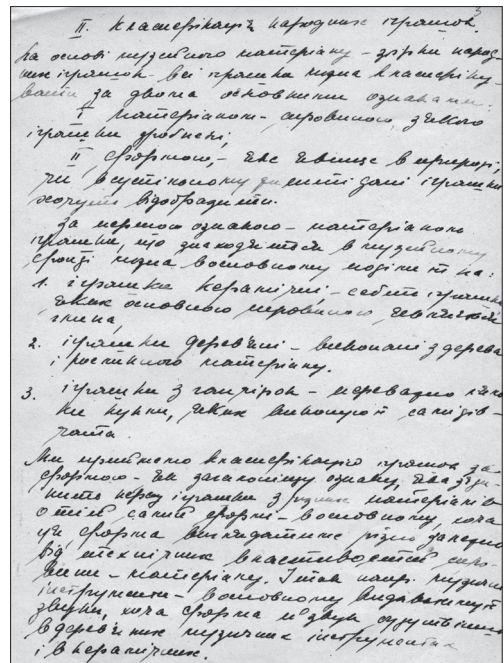 3
II. Класифікація народних іграшок.
На основі музейного матеріалу – збірки народ-
них іграшок – всі іграшки можна класифіку-
вати за двома основними ознаками:
I матеріалом – сировиною, з якого
іграшки зроблені,
II формою, – яке явище в природі,
чи в суспільному житті дані іграшки
хочуть відобразити.
За першою ознакою – матеріалом
іграшки, що знаходяться в музейному
фонді можна в основному поділити на:
1. іграшки керамічні, – себто іграшки
яких основною сировиною, являється
глина,
2. іграшки дерев'яні – виконані з дерева
і рослинного матеріалу.
3. іграшки з ганчірок – переважно
ки куклы, яких виконують самі дів-
чата.
Ми приймемо класифікацію іграшок за
формою – як загальнішу ознаку, яка
нить перед іграшки з різних матеріалів
о тій самій формі – в основному, хоча
ця форма виглядатиме різно залежно
від технічних властивостей сиро-
вини – матеріалу. І так напр. музичні
інструменти – в основному видаватимуть
звуки, хоча форма й звук
в дерев'яних музичних інструментах
і в керамічних.